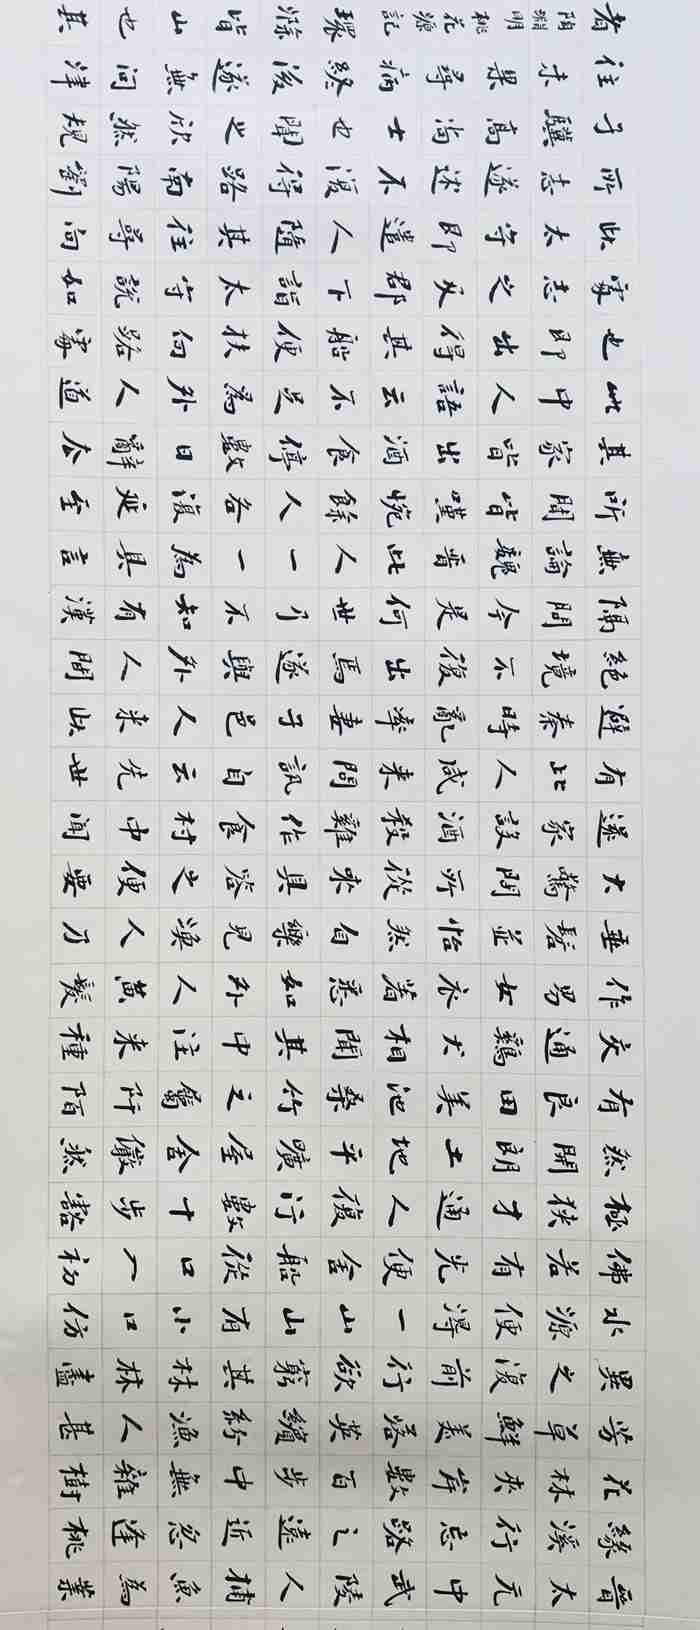 晉太元中武陵人捕魚為業
緣溪行忘路之遠近忽逢桃
花林夾岸數百步中無雜樹
芳草鮮美落英繽紛漁人甚
異之復前行欲窮其林林盡
水源便得一山山有小口仿
佛若有光便舍船從口入初
極狹才通人復行數十步豁
然開朗土地平曠屋舍儼然
有良田美池桑竹之屬阡陌
交通鷄犬相聞其中往来種
作男女衣着悉如外人黄髮
垂髫並怡然自樂見漁人乃
大驚問所從来具答之便要
還家設酒殺雞作食村中聞
有此人咸来問訊自云先世
避秦時亂率妻子邑人来此
絕境不復出焉遂與外人間
隔問今是何世乃不知有漢
無論魏晉此人一一為具言
所聞皆嘆惋餘人各復延至
其家皆出酒食停數日辭去
此中人語云不足為外人道
也即出得其船便扶向路處
處志之及郡下詣太守說如
此太守即遣人隨其往尋向
所志遂迷不復得路南陽劉
子驥高尚士也聞之欣然規
往未果尋病終後遂無問津
者陶淵明桃花源記環滁皆山也其